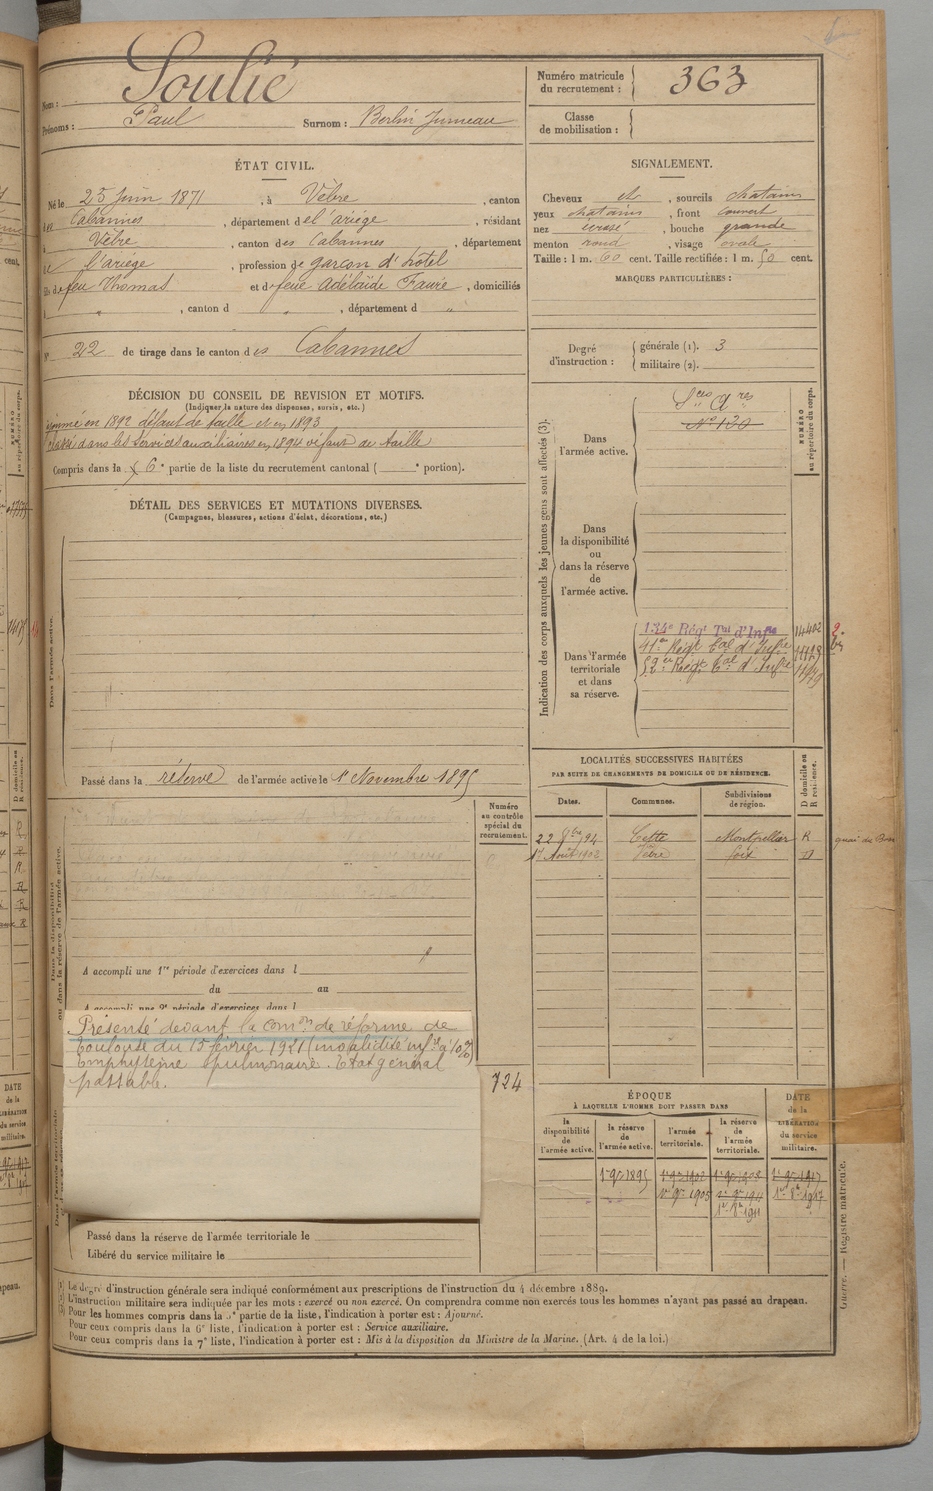 Nom : Soulié
Prénoms : Paul Surnom : Berlin Jumeau
Numéro matricule du recrutement : 363
Classe de mobilisation :
ÉTAT CIVIL.
Né le 25 Juin 1871, à Vèbre, canton
des Cabannes, département de l'ariège, résidant
à Vèbre, canton des Cabannes, département
de l'ariège, profession de garçon d'hotel
fils de feu Thomas et de feue Adélaïde Faure, domiciliés
à " , canton d " , département d "
N° 22 de tirage dans le canton des Cabannes
SIGNALEMENT.
Cheveux et, sourcils chatains
yeux chatains, front couvert
nez écrasé, bouche grande
menton rond, visage ovale
Taille : 1 m. 60 cent. Taille rectifiée : 1 m. 50 cent.
MARQUES PARTICULIÈRES :
Degré d'instruction : générale (1). 3
militaire (2).
DÉCISION DU CONSEIL DE REVISION ET MOTIFS.
(Indiquer la nature des dispenses, sursis, etc.)
ajourné en 1892 défaut de taille et en 1893
classé dans les Services auxiliaires en 1894 défaut de taille
Compris dans la 6e partie de la liste du recrutement cantonal ( e portion).
DÉTAIL DES SERVICES ET MUTATIONS DIVERSES.
(Campagnes, blessures, actions d'éclat, décorations, etc.)
Dans l'armée active.
Passé dans la réserve de l'armée active le 1er Novembre 1895
Indication des corps auxquels les jeunes gens sont affectés (3).
NUMÉRO au répertoire du corps.
Dans l'armée active.
Sces Ares
N° 130
Dans la disponibilité ou dans la réserve de l'armée active.
Dans l'armée territoriale et dans sa réserve.
134e Régt Tal d'Infie 14402
41e Régt Tal d'Infrie
52e Régt Tal d'Infrie
LOCALITÉS SUCCESSIVES HABITÉES
PAR SUITE DE CHANGEMENTS DE DOMICILE OU DE RÉSIDENCE.
Dates. Communes. Subdivisions de région. D domicile ou R résidence.
22 8bre 94 Cette Montpellier R quai de Bosc
1er Août 1902 Vèbre foix D
Numéro au contrôle spécial du recrutement.
Dans la disponibilité ou dans la réserve de l'armée active.
A accompli une 1re période d'exercices dans l
du au
A accompli une 2e période d'exercices dans l
Présenté devant la comon de réforme de
Toulouse du 15 février 1921 (invalidité infre à 10%)
Emphysème pulmonaire. Etat général
passable.
724
Passé dans la réserve de l'armée territoriale le
Libéré du service militaire le
ÉPOQUE
À LAQUELLE L'HOMME DOIT PASSER DANS
la disponibilité de l'armée active. la réserve de l'armée active. l'armée territoriale. la réserve de l'armée territoriale. DATE de la LIBÉRATION du service militaire.
1er 9e 1895 1er 9e 1908 1er 9e 1917
1er 9e 1905 1er 9e 1911 1er 8e 1917
1er 8e 1911
(1) Le degré d'instruction générale sera indiqué conformément aux prescriptions de l'instruction du 4 décembre 1889.
(2) L'instruction militaire sera indiquée par les mots : exercé ou non exercé. On comprendra comme non exercés tous les hommes n'ayant pas passé au drapeau.
(3) Pour les hommes compris dans la 5e partie de la liste, l'indication à porter est : Ajourné.
Pour ceux compris dans la 6e liste, l'indication à porter est : Service auxiliaire.
Pour ceux compris dans la 7e liste, l'indication à porter est : Mis à la disposition du Ministre de la Marine. (Art. 4 de la loi.)
Guerre. — Registre matricule.